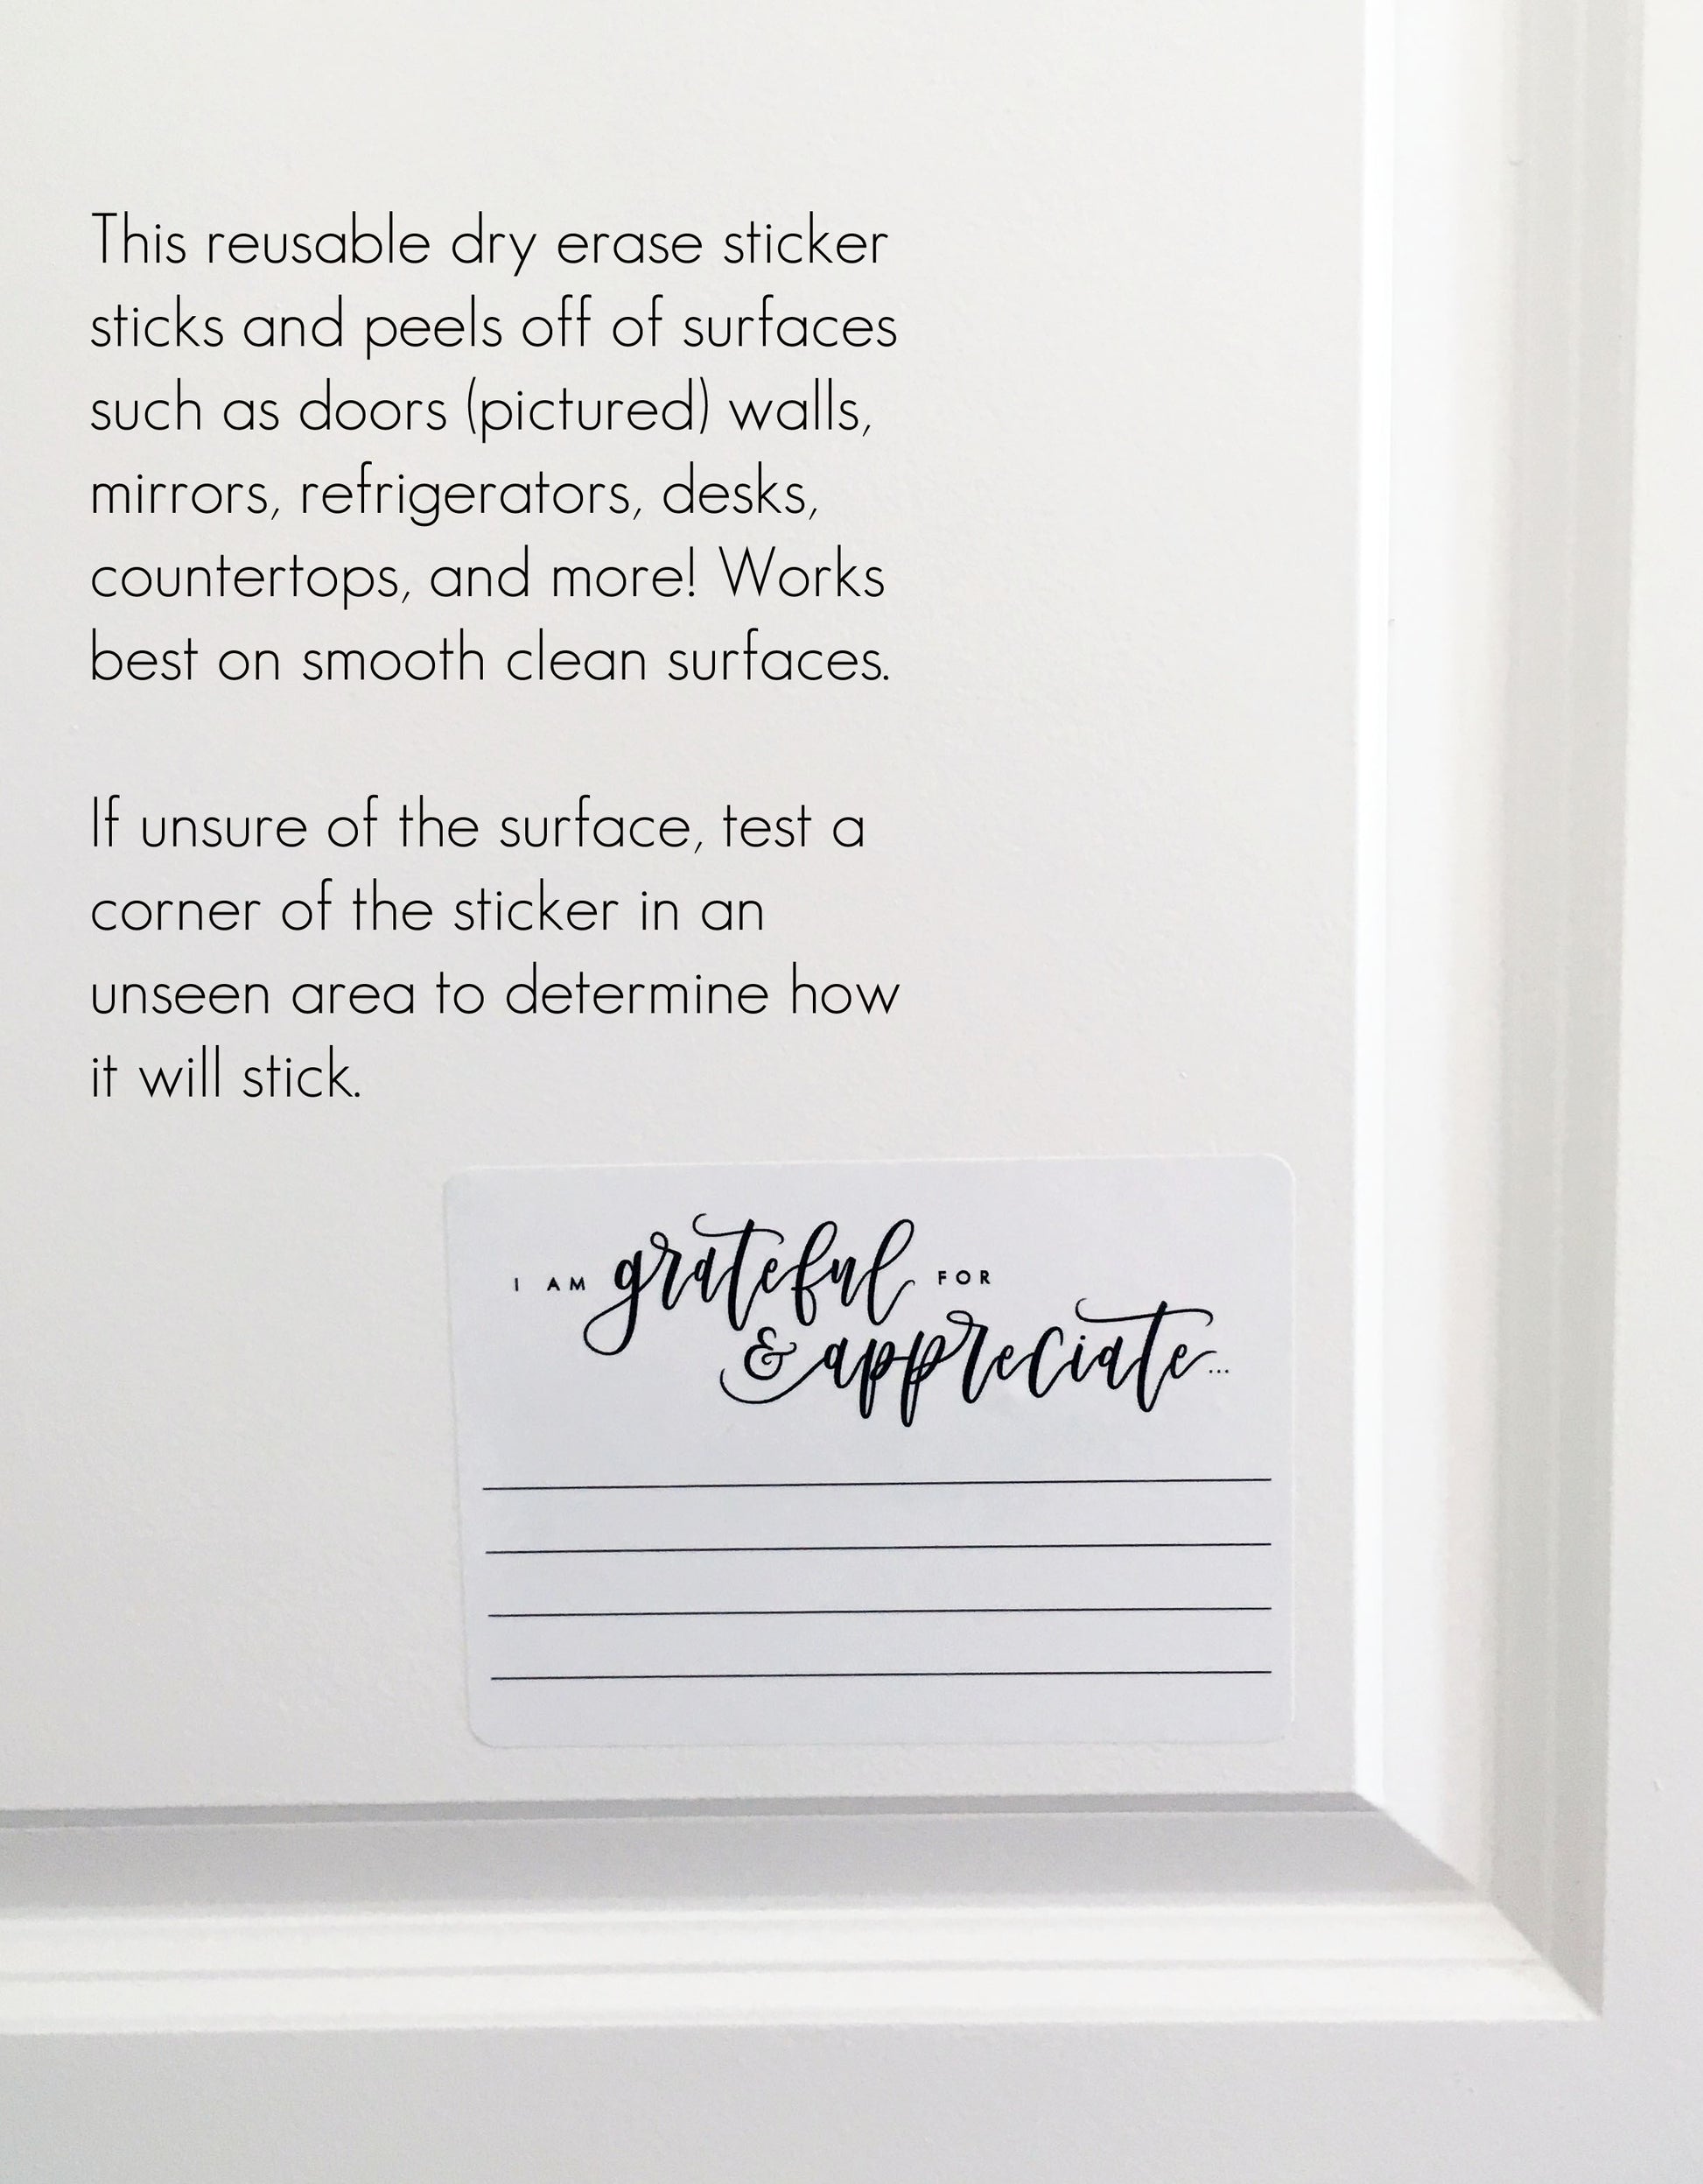 This reusable dry erase sticker
sticks and peels off of surfaces
such as doors (pictured) walls,
mirrors, refrigerators, desks,
countertops, and more! Works
best on smooth clean surfaces.
If unsure of the surface, test a
corner of the sticker in an
unseen area to determine how
it will stick.
I AM grateful FOR
& appreciate...